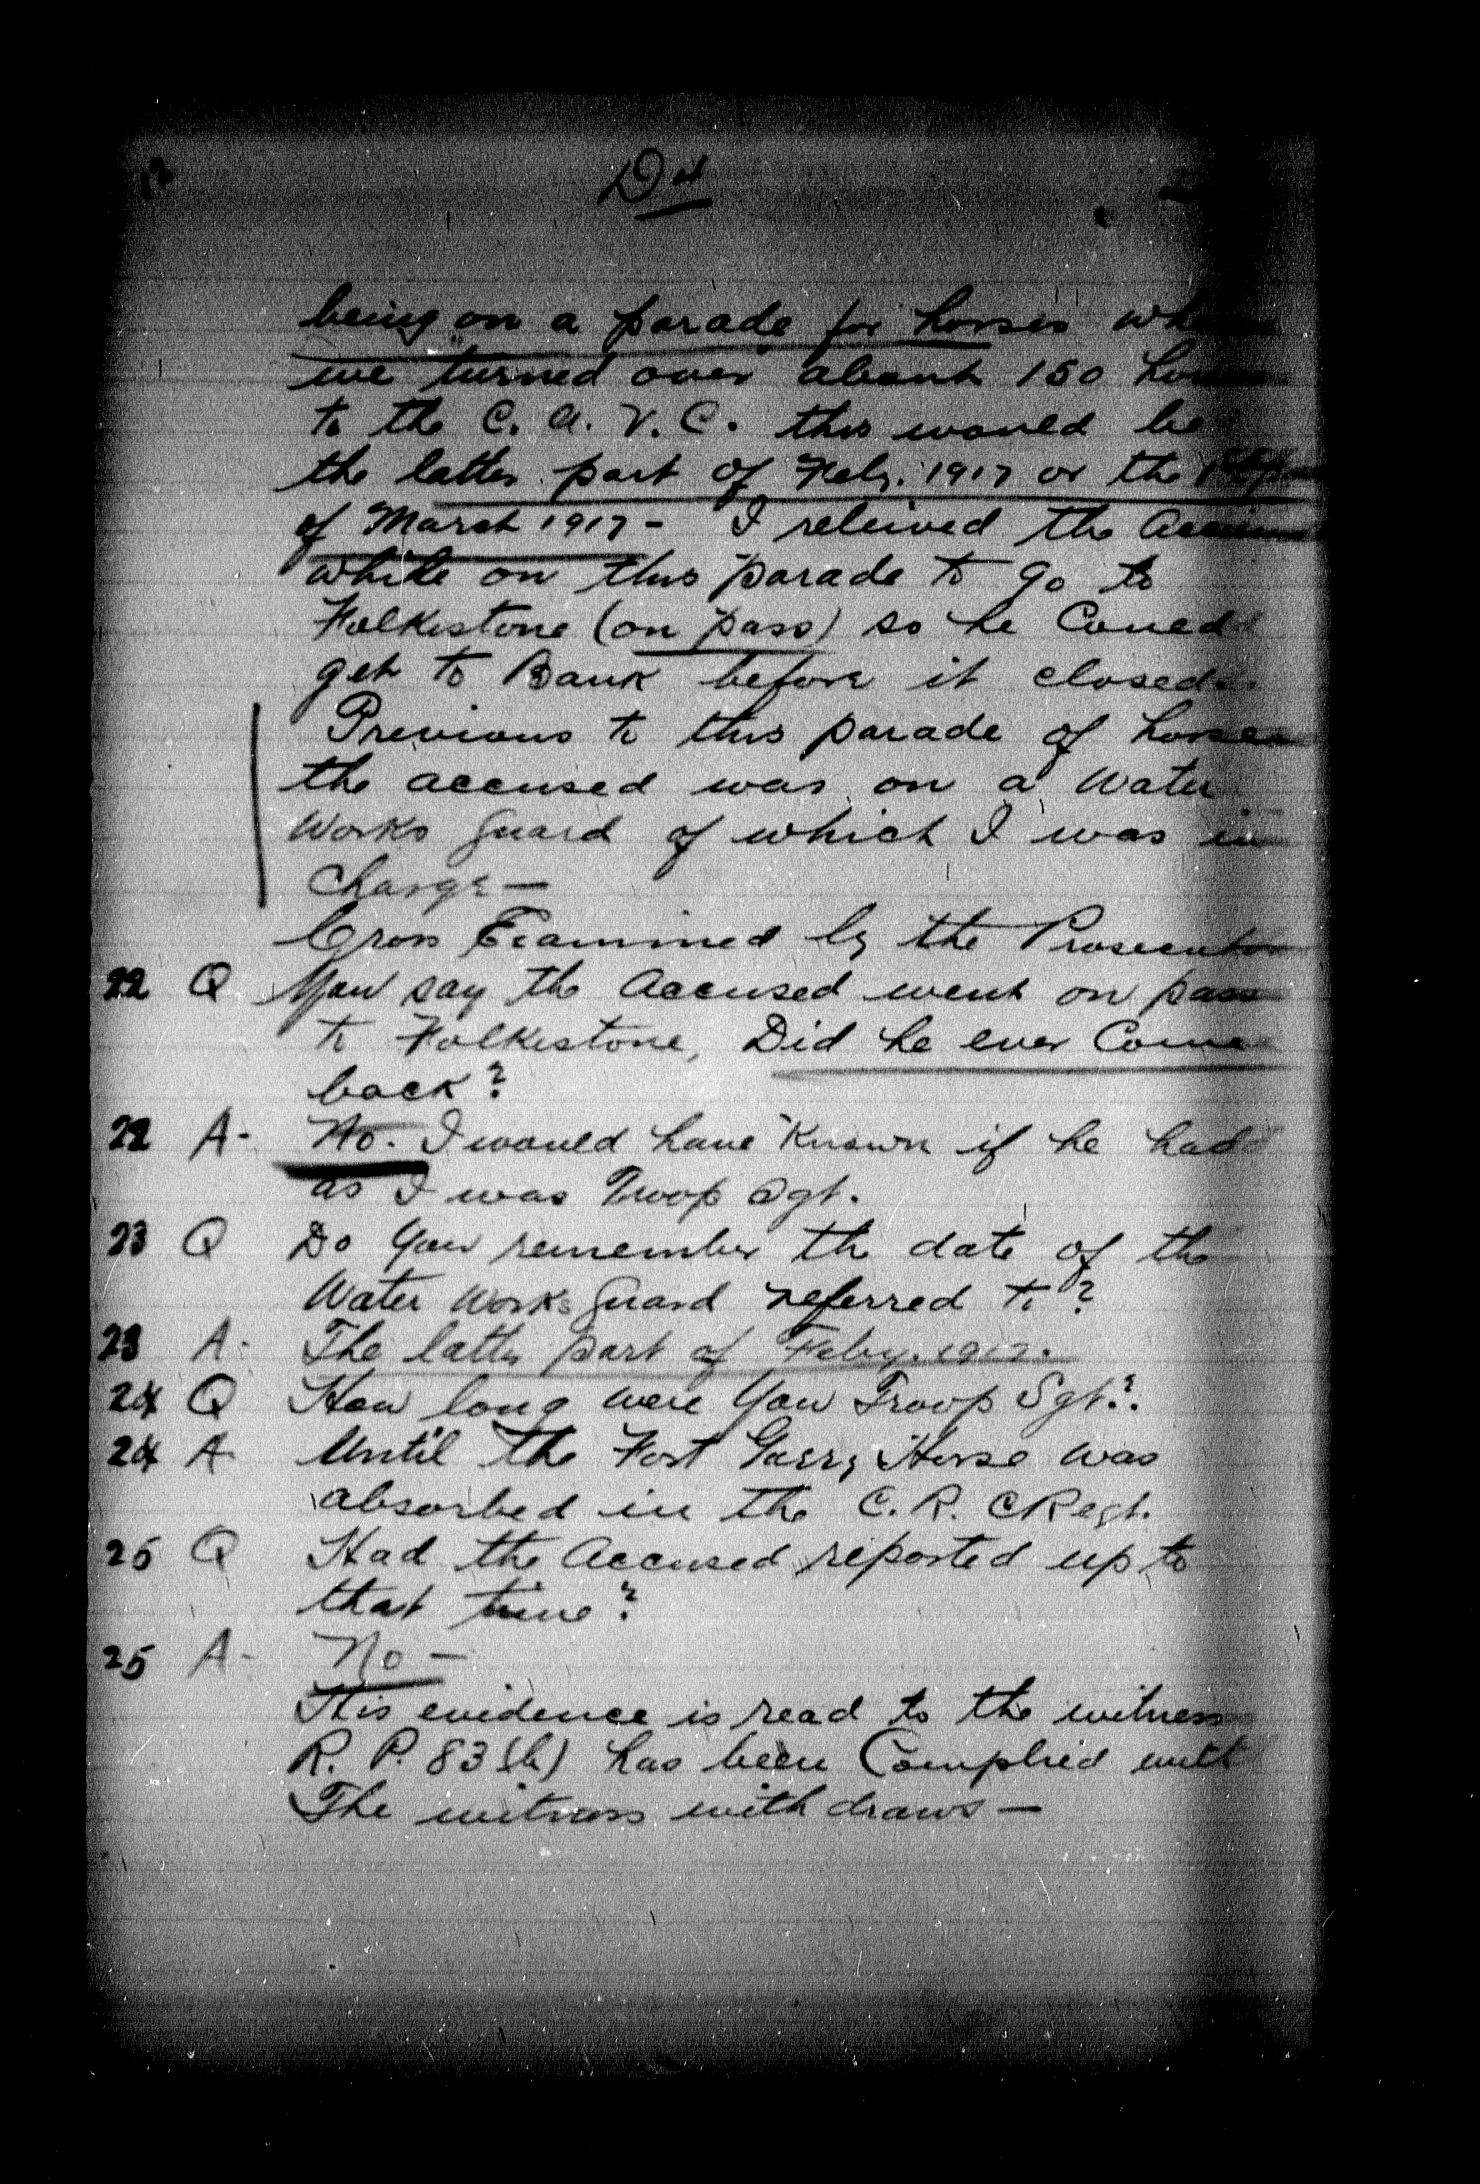 being on a parade for horses when
we turned over about 150 horses
to the C. A. V. C. this would be
the latter part of Feby. 1917 or the
of March 1917 - I releived the Accused
while on this parade to go to
Folkestone (on pass) so he Could
get to Bank before it closed.
Previous to this parade of horses
the accused was on a Water
Works Guard of which I was in
Charge -
Cross Examined by the Prosecutor
22 Q You say the Accused went on pass
to Folkestone, Did he ever Come
back?
22 A- No. I would have Known if he had
as I was Troop Sgt.
23 Q Do You remember the date of the
Water Works Guard referred to?
23 A- The latter part of Feby. 1917.
24 Q How long were You Troop Sgt.?
24 A Until the Fort Garry Horse was
absorbed in the C. R. C Regt.
25 Q Had the Accused reported up to
that time?
25 A- No -
His evidence is read to the witness
R. P. 83 (b) has been Complied with
The witness withdraws -